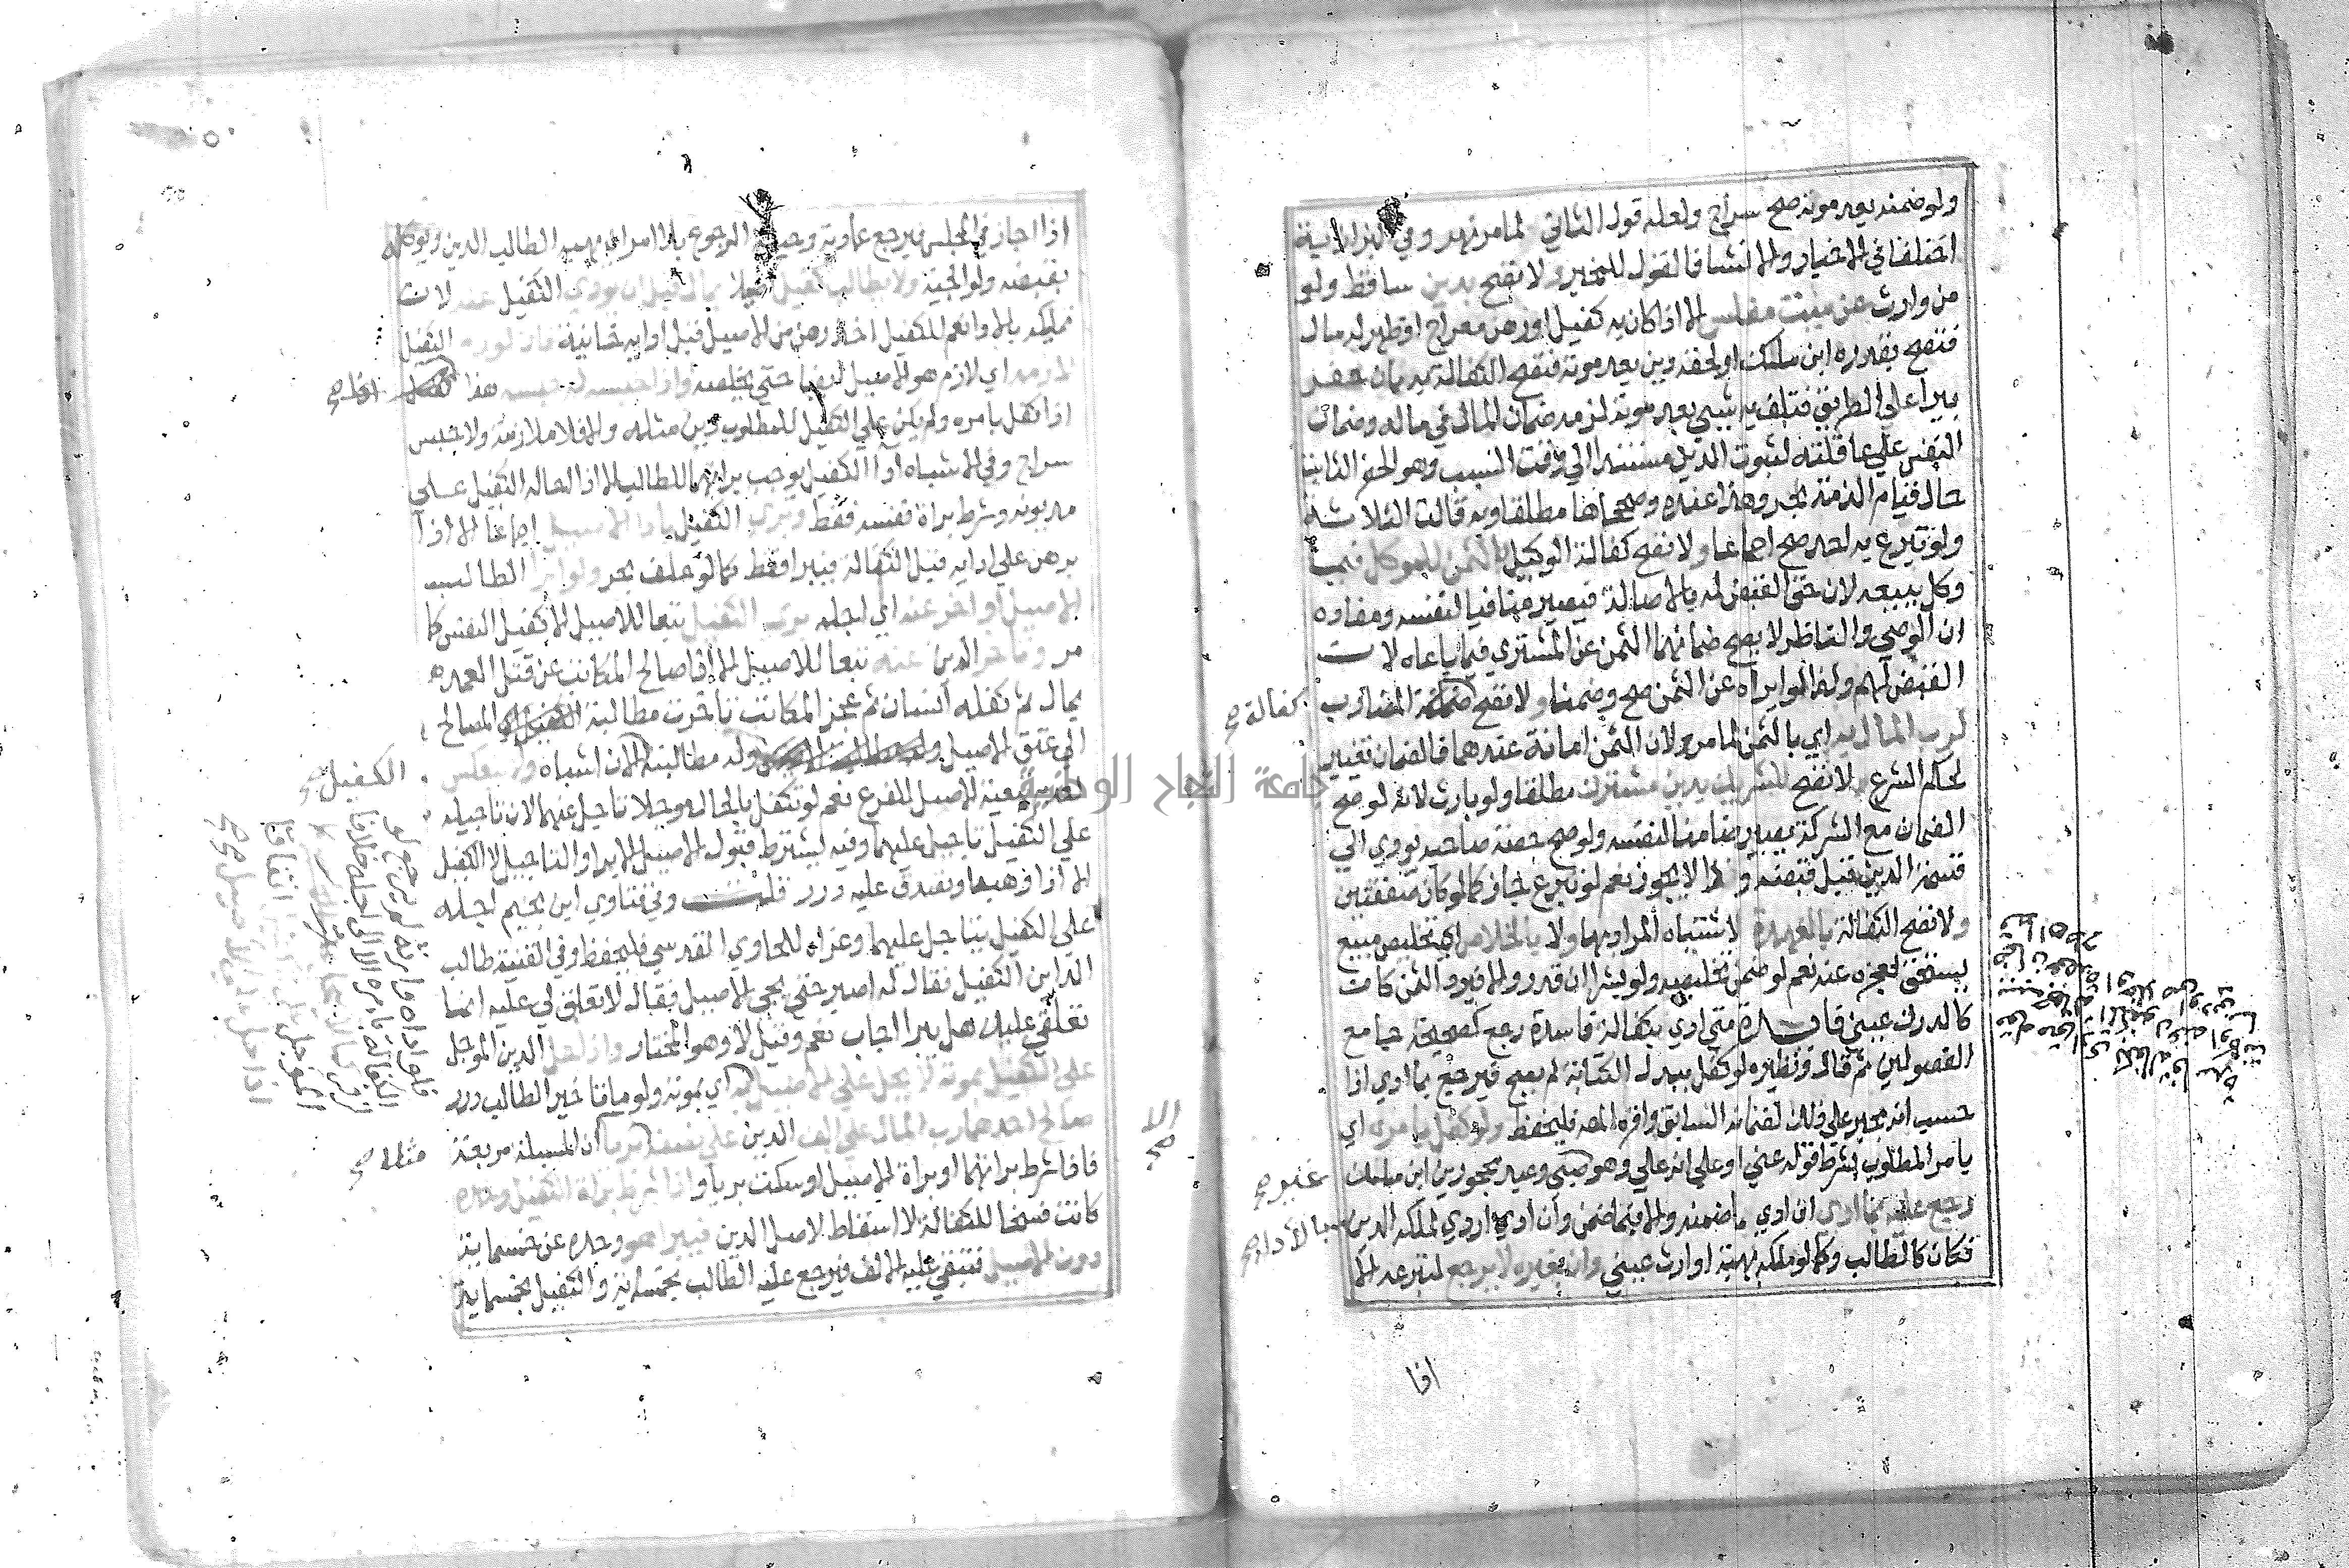 ولو ضمنه بعد موته صح سراج ولعله قول الثاني لما مر نهر وفي البزازية
اختلفا في الاخبار والانشا فالقول للمخبر و لا تصح بدين ساقط ولو
من وارث عن ميت مفلس الا اذا كان به كفيل او رهن معراج او ظهر له مال
فتصح بقدره ابن ملك او لحقه دين بعد موته فتصح الكفالة به بان حفر
بيرا علي الطريق فتلف به شيي بعد موته لزمه ضمان المال في ماله وضمان
النفس علي عاقلته لثبوت الدين مستندا الي وقت السبب وهو الحفر الثابت
حال قيام الذمة بحر وهذا عنده وصححاها مطلقا وبه قالت الثلاثة
ولو تبرع به احد صح اجماعا ولا تصح كفالة الوكيل بالثمن للموكل فيما
وكل ببيعه لان حق القبض له بالاصالة فيصير ضامنا لنفسه ومفاده
ان الوصي والناظر لا يصح ضمانهما الثمن عن المشتري فيما باعاه لان
القبض لهم ولذا لو ابراه عن الثمن صح وضمنا ولا تصح المضارب
كفالة صح
لرب المال به اي بالثمن لما مر ولان الثمن امانة عندهما فالضمان تغيير
لحكم الشرع و لا تصح للشريك بدين مشترك مطلقا ولو بارث لانه لو صح
الضمان مع الشركة يصير ضامنا لنفسه ولو صح حصة صاحبه يودي الي
قسمة الدين قبل قبضه وذا لا يجوز نعم لو تبرع جاز كما لو كان صفقتين
ولا تصح الكفالة بالعهدة لاشتباه المراد بها ولا بالخلاص اي تخليص مبيع
يستحق لعجزه عنه نعم لو ضمن تخليصه ولو بشرا ان قدر والا فيرد الثمن كان
كالدرك عيني فايدة متي ادي بكفالة فاسدة رجع كصحيحة جامع
الفصولين ثم قال ونظيره لو كفل ببدل الكتابة لم يصح فيرجع بما ادي اذا
حسب انه مجبر علي ذلك لضمانه السابق واقره المص فليحفظ ولو كفل بامره اي
بامر المطلوب بشرط قوله عني او علي انه علي وهو صبي وعبد محجورين ابن ملك
غير صح
رجع عليه بما ادي ان ادي ما ضمنه والا فبما ضمن وان ادي اردي لملكه الدين
بالاداء صح
فكان كالطالب وكما لو ملكه بهبة او ارث عيني وان بغيره لا يرجع لتبرعه الا
اذا
اذا اجاز في المجلس فيرجع عمادية وحيلة الرجوع بلا امر ان يهبه الطالب الدين ويوكله
بقبضه ولوالجية ولا يطالب كفيل اصيلا بمال قبل ان يودي الكفيل عنه لان
تملكه بالادا نعم للكفيل اخذ رهن من الاصيل قبل ادايه خانية فان لوزم الكفيل
لازمه اي لازم هو الاصيل ايضا حتي يخلصه واذا حبسه له حبسه هذا
اذا صح
اذا كفل بامره ولم يكن علي الكفيل للمطلوب دين مثله والا فلا ملازمة ولا حبس
سراج وفي الاشباه ادا الكفيل يوجب براتهما للطالب الا اذا احاله الكفيل علي
مديونه وشرط براة نفسه فقط وبري الكفيل بادا الاصيل اجماعا الا اذا
برهن علي ادايه قبل الكفالة فيبرا فقط كما لو حلف بحر ولو ابرا الطالب
الاصيل او اخر عنه اي اجله بري الكفيل تبعا للاصيل الا كفيل النفس كما
مر وتاخر الدين عنه تبعا للاصيل الا اذا صالح المكاتب عن قتل العمد
بمال ثم كفله انسان ثم عجز المكاتب تاخرت مطالبة المصالح
الي عتق الاصيل وله مطالبة الان اشباه ولا ينعكس
الكفيل صح
لعدم تبعية الاصل للفرع نعم لو تكفل بالحال موجلا تاجل عنهما لان تاجيله
علي الكفيل تاجيل عليهما وفيه يشترط قبول الاصيل الابرا والتاجيل لا الكفيل
الا اذا وهبه او تصدق عليه درر قلت وفي فتاوي ابن نجيم اجله
علي الكفيل يتاجل عليهما وعزاه للحاوي القدسي فليحفظ وفي القنية طالب
الداين الكفيل فقال له اصبر حتي يجي الاصيل فقال لا تعلق لي عليه انما
تعلقي عليك هل يبرا اجاب نعم وقيل لا وهو المختار واذا حل الدين الموجل
علي الكفيل بموته لا يحل علي الاصيل اي بموته ولو ماتا خير الطالب درر
صالح احدهما رب المال علي الف الدين علي نصفه ان المسيلة مربعة
مثلا صح
الا صح
فاذا شرط براتهما او براة الاصيل او سكت بريا و اذا شرط براة الكفيل وحده
كانت فسخا للكفالة لا اسقاط لاصل الدين فيبرا هو وحده عن خمسماية
دون الاصيل فتبقي عليه الالف فيرجع عليه الطالب بخمسماية والكفيل بخمسماية
جامعة النجاح الوطنية